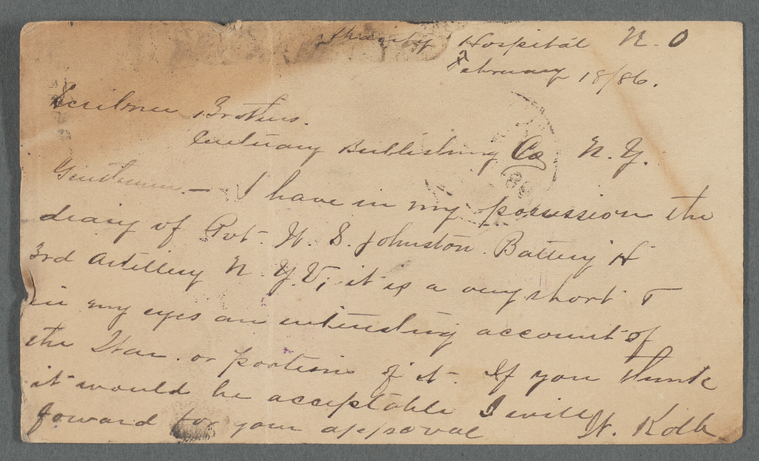 Charity Hospital N. O
February 18/86.
Scribner Brothers.
Century Publishing Co N. Y.
Gentlemen. — I have in my possession the
diary of Pvt. W. S. Johnston. Battery H
3rd Artillery N. Y. V, it is a very short &
in my eyes an interesting account of
the War. or portions of it. If you think
it would be acceptable I will
foward for your approval W. Kolb